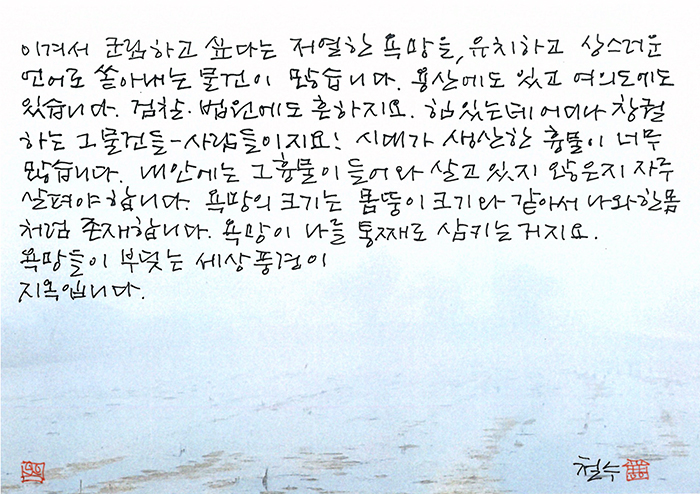 이겨서 군림하고 싶다는 저열한 욕망을, 유치하고 상스러운
언어로 쏟아내는 물건이 많습니다. 용산에도 있고 여의도에도
있습니다. 검찰·법원에도 흔하지요. 힘있는데 어디나 창궐
하는 그물건들-사람들이지요! 시대가 생산한 흉물이 너무
많습니다. 내안에는 그흉물이 들어와 살고 있지 않은지 자주
살펴야합니다. 욕망의 크기는 몸뚱이 크기와 같아서 나와한몸
처럼 존재합니다. 욕망이 나를 통째로 삼키는거지요.
욕망들이 부딪는 세상풍경이
지옥입니다.
철수